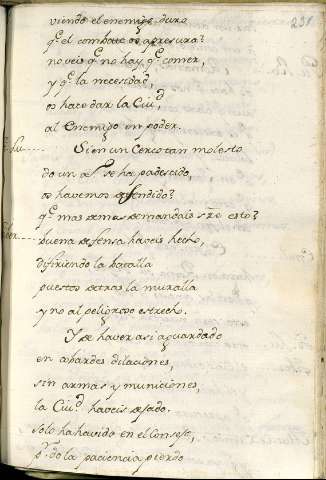 231
viendo el enemigo duro
q.e el combate os apresura?
no veis q.e no hay q.e comer,
y q.e la necesidad,
os hace dar la Ciu.d
al Enemigo en poder.
Si en un Cerco tan molesto
do un a.s se ha padecido,
os havemos defendido?
q.e mas demandais s.re esto?
buena defensa haveis hecho,
difiriendo la batalla
puestos detras la muralla
y no al peligroso estrecho.
Y de haver asi aguardado
en cobardes dilaciones,
sin armas y municiones,
la Ciu.d haveis dejado.
solo ha havido en el Consejo,
p.r do la paciencia pierdo